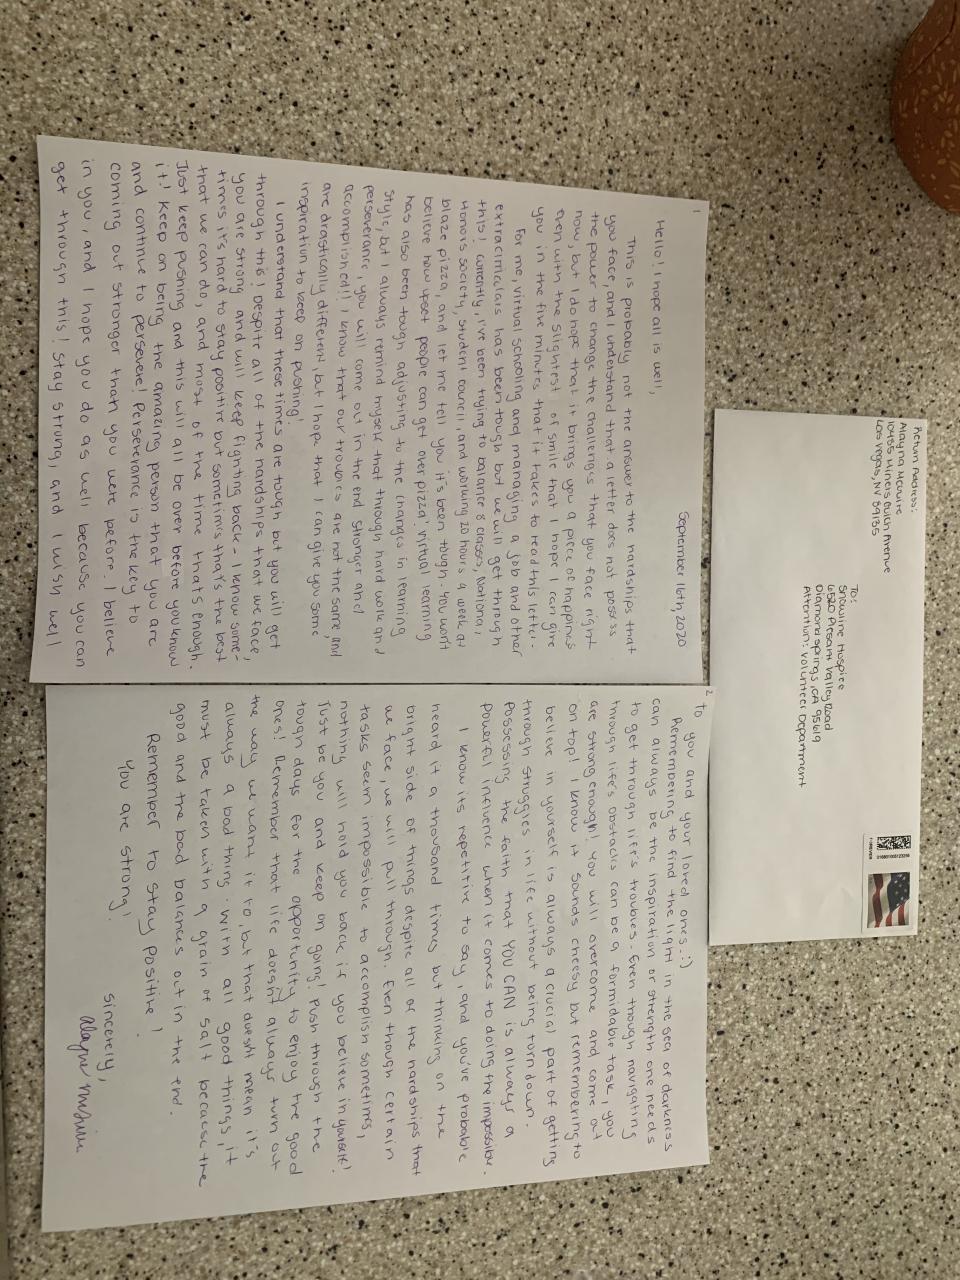 September 16th, 2020
Hello! I hope all is well,
This is probably not the answer to the hardships that
you face, and I understand that a letter does not possess
the power to change the challenges that you face right
now, but I do hope that it brings you a piece of happiness
even with the slightest of smile that I hope I can give
you in the five minutes that it takes to read this letter.
For me, virtual schooling and managing a job and other
extracirriculars has been tough but we will get through
this! Currently, I've been trying to balance 8 classes, National
Honors Society, student council, and working 20 hours a week at
blaze pizza, and let me tell you it's been tough. You won't
believe how upset people can get over pizza! Virtual learning
has also been tough adjusting to the changes in learning
style, but I always remind myself that through hard work and
perseverance, you will come out in the end stronger and
accomplished!! I know that our troubles are not the same and
are drastically different, but I hope that I can give you some
inspiration to keep on pushing!
I understand that these times are tough but you will get
through this! Despite all of the hardships that we face,
you are strong and will keep fighting back- I know some-
times it's hard to stay positive but sometimes that's the best
that we can do, and most of the time that's enough.
Just keep pushing and this will all be over before you know
it! Keep on being the amazing person that you are
and continue to persevere! Perseverance is the key to
coming out stronger than you were before. I believe
in you, and I hope you do as well because you can
get through this! Stay strong, and I wish well
2
to you and your loved ones. :)
Remembering to find the light in the sea of darkness
can always be the inspiration or strength one needs
to get through life's troubles. Even though navigating
through life's obstacles can be a formidable task, you
are strong enough! You will overcome and come out
on top! I know it sounds cheesy but remembering to
believe in yourself is always a crucial part of getting
through struggles in life without being torn down.
Possessing the faith that YOU CAN is always a
powerful influence when it comes to doing the impossible.
I know its repetitive to say, and you've probable
heard it a thousand times but thinking on the
bright side of things despite all of the hardships that
we face, we will pull through. Even though certain
tasks seem impossible to accomplish sometimes,
nothing will hold you back if you believe in yourself!
Just be you and keep on going! Push through the
tough days for the opportunity to enjoy the good
ones! Remember that life doesn't always turn out
the way we want it to, but that doesn't mean it's
always a bad thing. With all good things, it
must be taken with a grain of salt because the
good and the bad balances out in the end.
Remember to stay positive!
You are strong!
Sincerely,
Return Address:
Alayna
Avenue
Las Vegas, NV 89135
To:
Snowline Hospice
6520 Plesant Valley Road
Diamond Springs, CA 95619
Attention: Volunteer Department